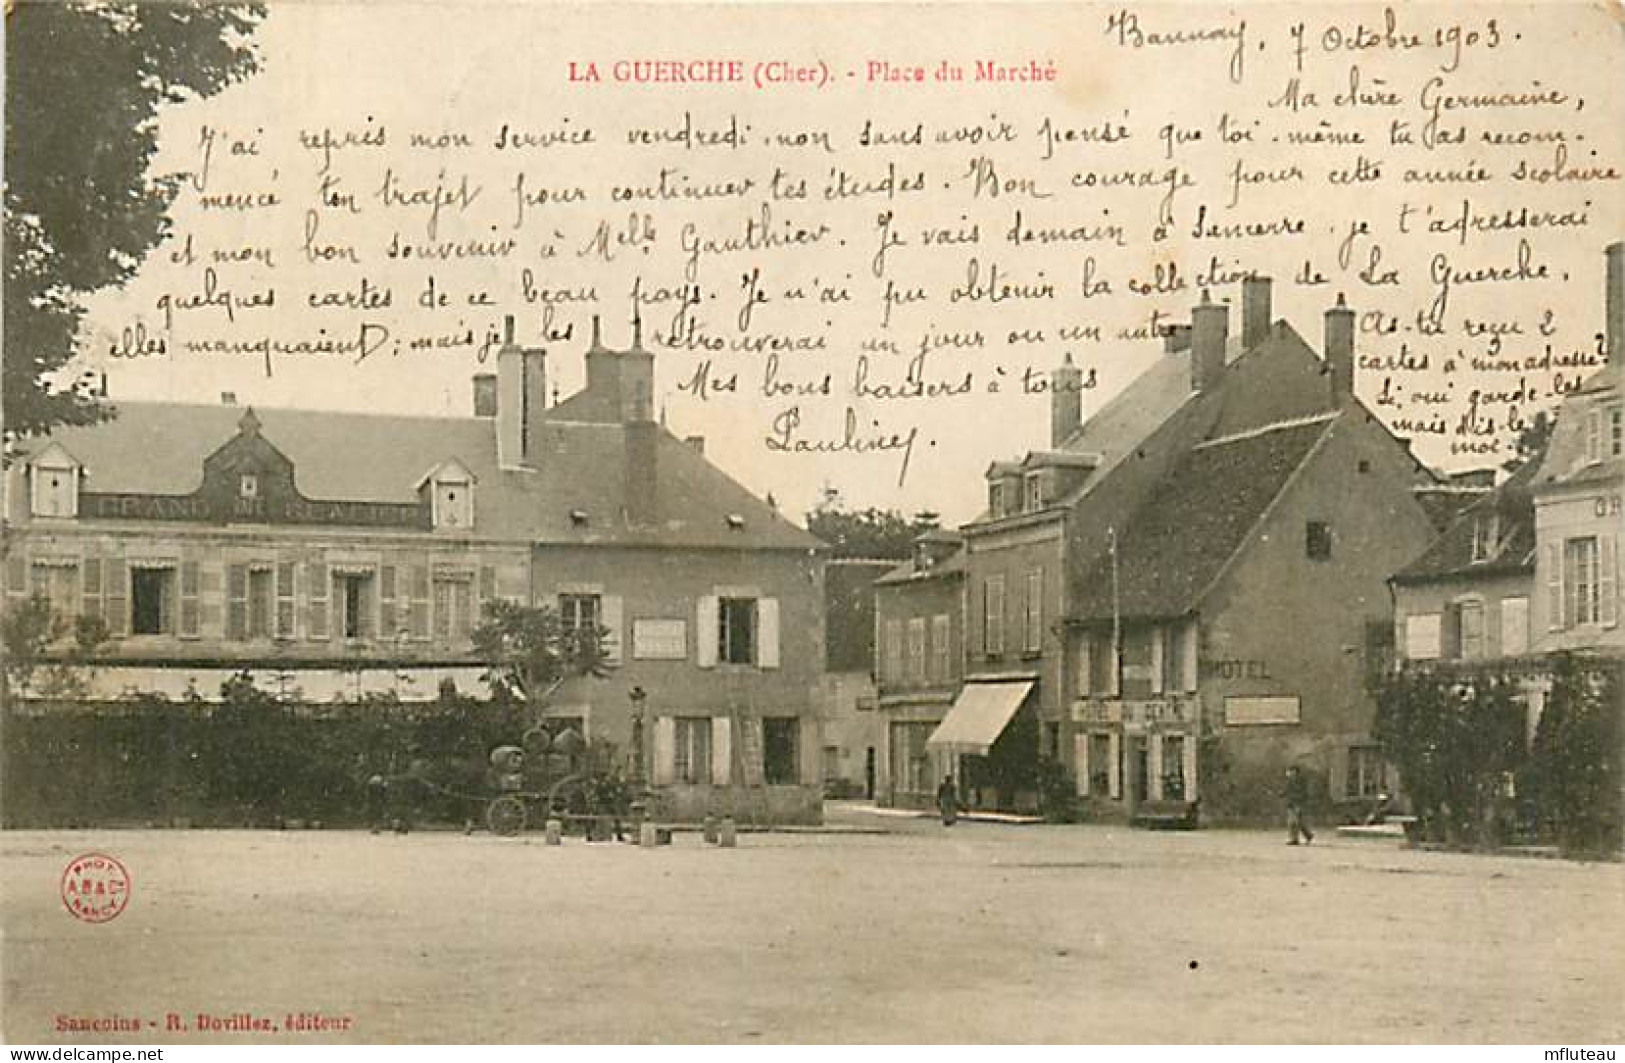 Bannay, 7 Octobre 1903.
LA GUERCHE (Cher). - Place du Marché
Ma chère Germaine,
J'ai repris mon service vendredi, non sans avoir pensé que toi-même tu as recom-
mencé ton trajet pour continuer tes études. Bon courage pour cette année scolaire
et mon bon souvenir à Melle Gauthier. Je vais demain à Sancerre, je t'adresserai
quelques cartes de ce beau pays. Je n'ai pu obtenir la collection de La Guerche,
elles manquaient; mais je les retrouverai un jour ou un autre.
Mes bons baisers à tous
Pauline.
As-tu reçu 2
cartes à mon adresse?
Si, oui garde-les
mais dis-le
moi.
GRAND BEAUJEU
HOTEL
HOTEL DU CENTRE
GR
PHOT.
A.B & Cie
NANCY
Sancoins - R. Dovillez, éditeur
mfluteau